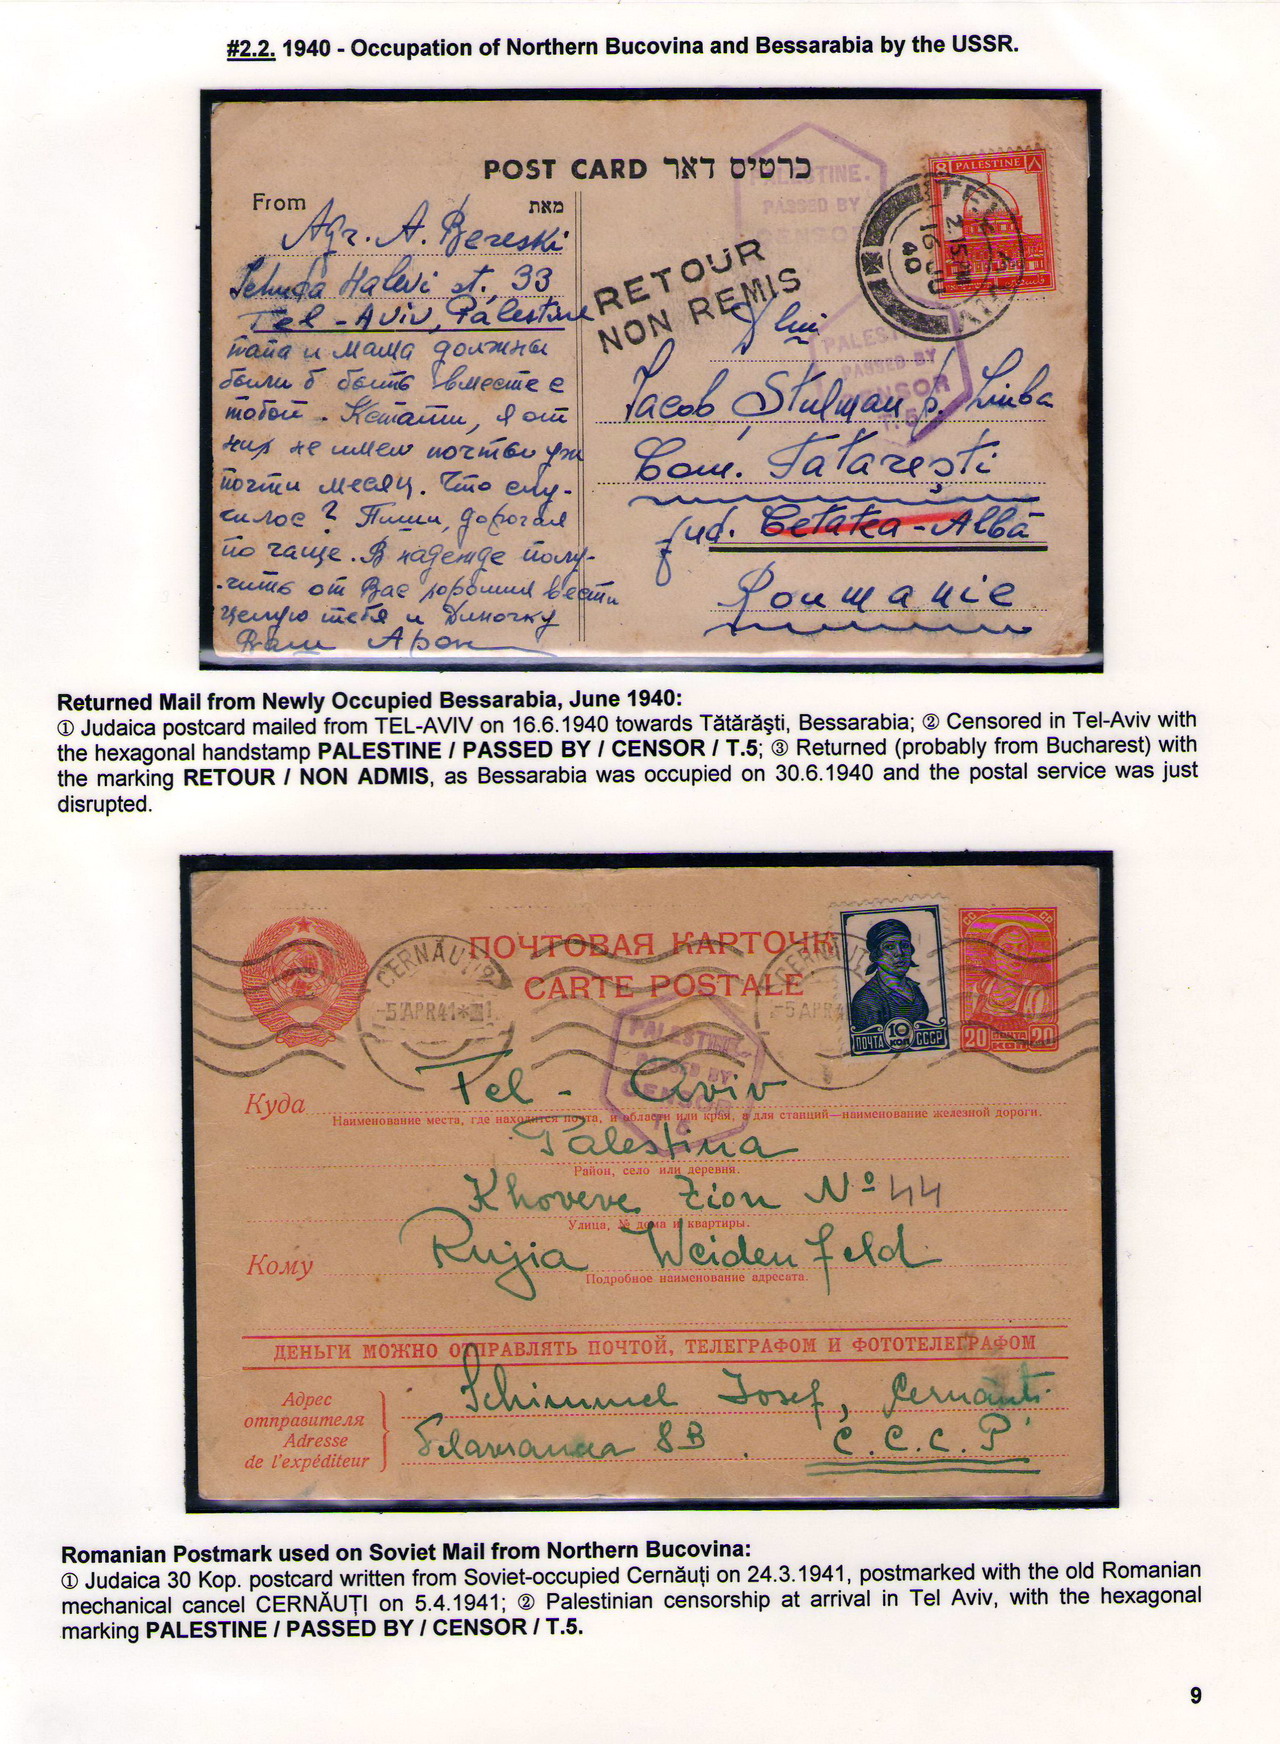 #2.2. 1940 - Occupation of Northern Bucovina and Bessarabia by the USSR.
POST CARD כרטיס דאר
From מאת
Agr. A. Bereski
Jehuda Halevi st. 33
Tel-Aviv, Palestine
папа и мама должны
были б быть вместе с
тобой. Кстати, я от
них не имею почты уж
почти месяц. Что слу-
чилос? Пиши, дорогая
по чаще. В надежде полу-
чить от Вас хорошия вести
целую тебя и Диночку
Ваш Арон
PALESTINE.
PASSED BY
CENSOR
RETOUR
NON REMIS
8 PALESTINE ٨
TEL AVIV
2.5 PM
16 JU
40
PALESTINE
PASSED BY
CENSOR
T.5
Dlui
Jacob Stulman p. Liuba
Com. Tatareşti
jud. Cetatea-Albă
Roumanie
Returned Mail from Newly Occupied Bessarabia, June 1940:
① Judaica postcard mailed from TEL-AVIV on 16.6.1940 towards Tătărăşti, Bessarabia; ② Censored in Tel-Aviv with
the hexagonal handstamp PALESTINE / PASSED BY / CENSOR / T.5; ③ Returned (probably from Bucharest) with
the marking RETOUR / NON ADMIS, as Bessarabia was occupied on 30.6.1940 and the postal service was just
disrupted.
ПОЧТОВАЯ КАРТОЧК
CARTE POSTALE
CERNĂUȚI 2
-5 APR 41
CERNĂUȚI
-5 APR 4
10 КОП
ПОЧТА СССР
СС СР
20 ПОЧТА КОП 20
PALESTINE
PASSED BY
CENSOR
Куда Tel - Aviv
Наименование места, где находится почта, и области или края, а для станций—наименование железной дороги.
Palestina
Район, село или деревня.
Khoveve Zion № 44
Улица, № дома и квартиры.
Кому Rujia Weidenfeld
Подробное наименование адресата.
ДЕНЬГИ МОЖНО ОТПРАВЛЯТЬ ПОЧТОЙ, ТЕЛЕГРАФОМ И ФОТОТЕЛЕГРАФОМ
Адрес
отправителя
Adresse
de l'expéditeur
Schimmel Josef, Cernăuti
8B. C.C.C.P
Romanian Postmark used on Soviet Mail from Northern Bucovina:
① Judaica 30 Kop. postcard written from Soviet-occupied Cernăuţi on 24.3.1941, postmarked with the old Romanian
mechanical cancel CERNĂUŢI on 5.4.1941; ② Palestinian censorship at arrival in Tel Aviv, with the hexagonal
marking PALESTINE / PASSED BY / CENSOR / T.5.
9